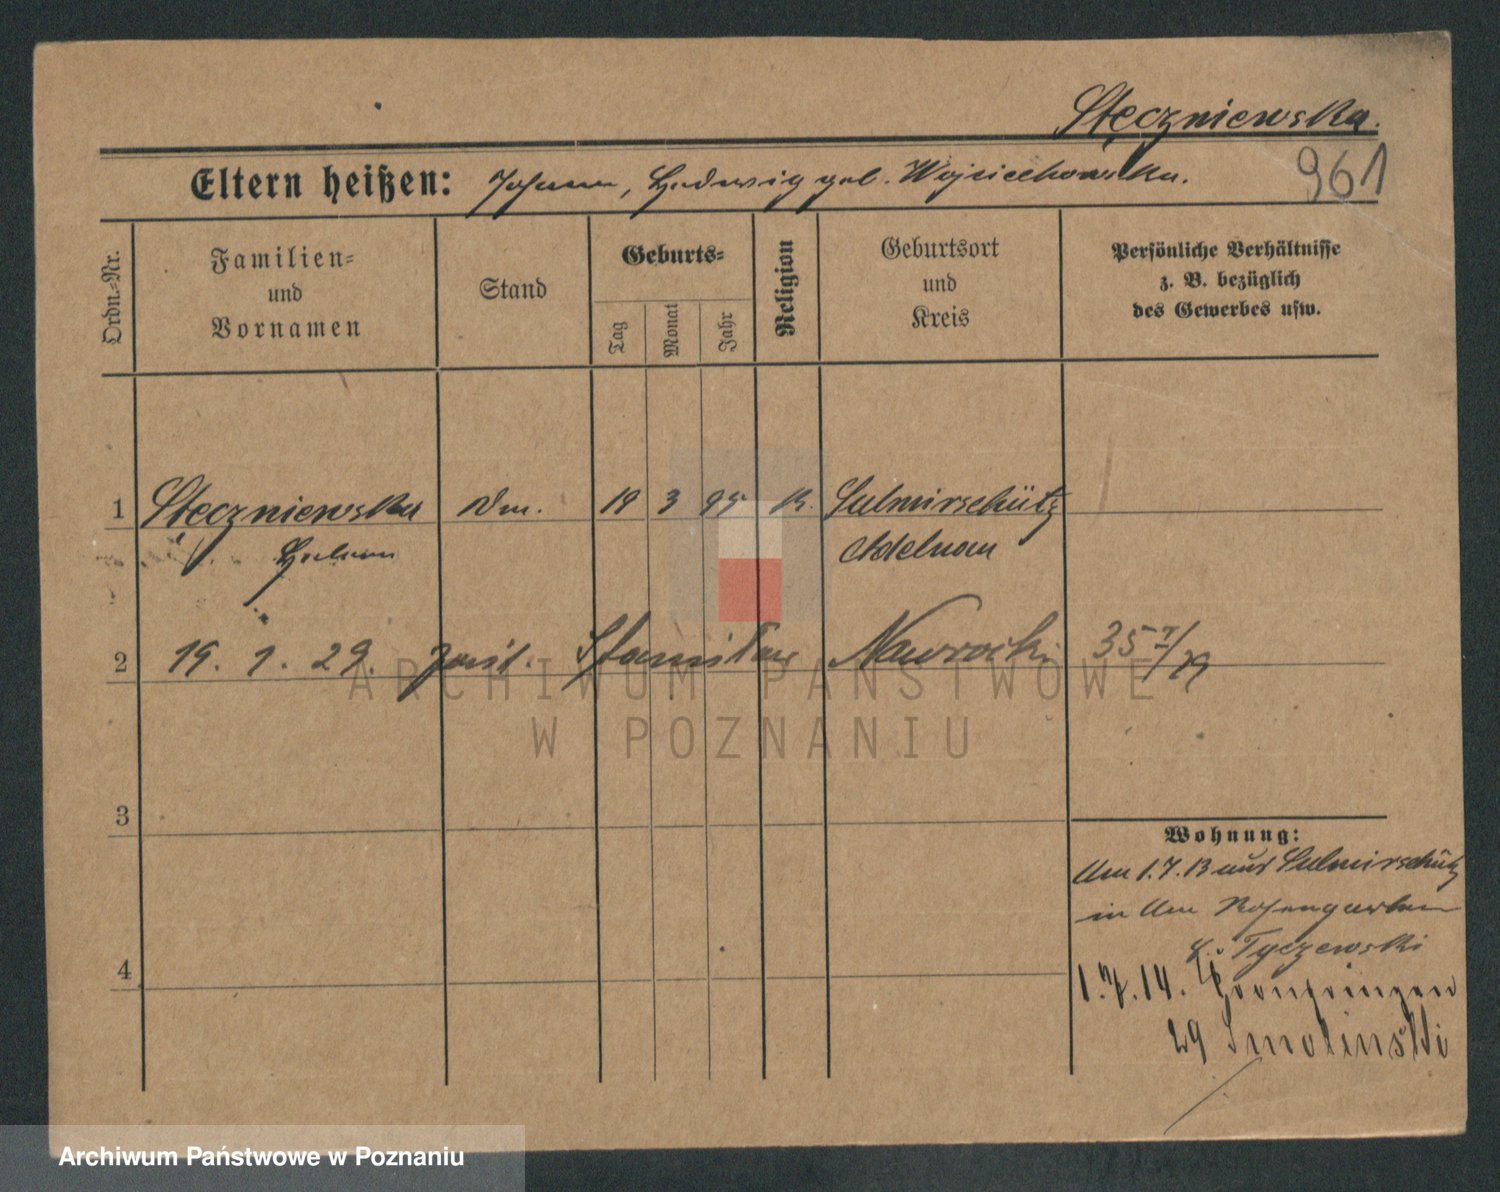 Stęczniewska.
961
Eltern heißen: Johann, Hedwig geb. Wojciechowska.
Ordn.-Nr.
Familien-
und
Vornamen
Stand
Geburts-
Tag
Monat
Jahr
Religion
Geburtsort
und
Kreis
Persönliche Verhältnisse
z. B. bezüglich
des Gewerbes usw.
1 Stęczniewska 19 3 95 k. Sulmirschütz
Helene Adelnau
2 19. 1. 29. Stanisław Nawrocki 35
ARCHIWUM PAŃSTWOWE
W POZNANIU
3
Wohnung:
Am 1.7.13 aus Sulmirschütz
in Am Rosengarten
b. Tyczewski
4
1.7.14. Kronprinzen
29 Smolinski
Archiwum Państwowe w Poznaniu